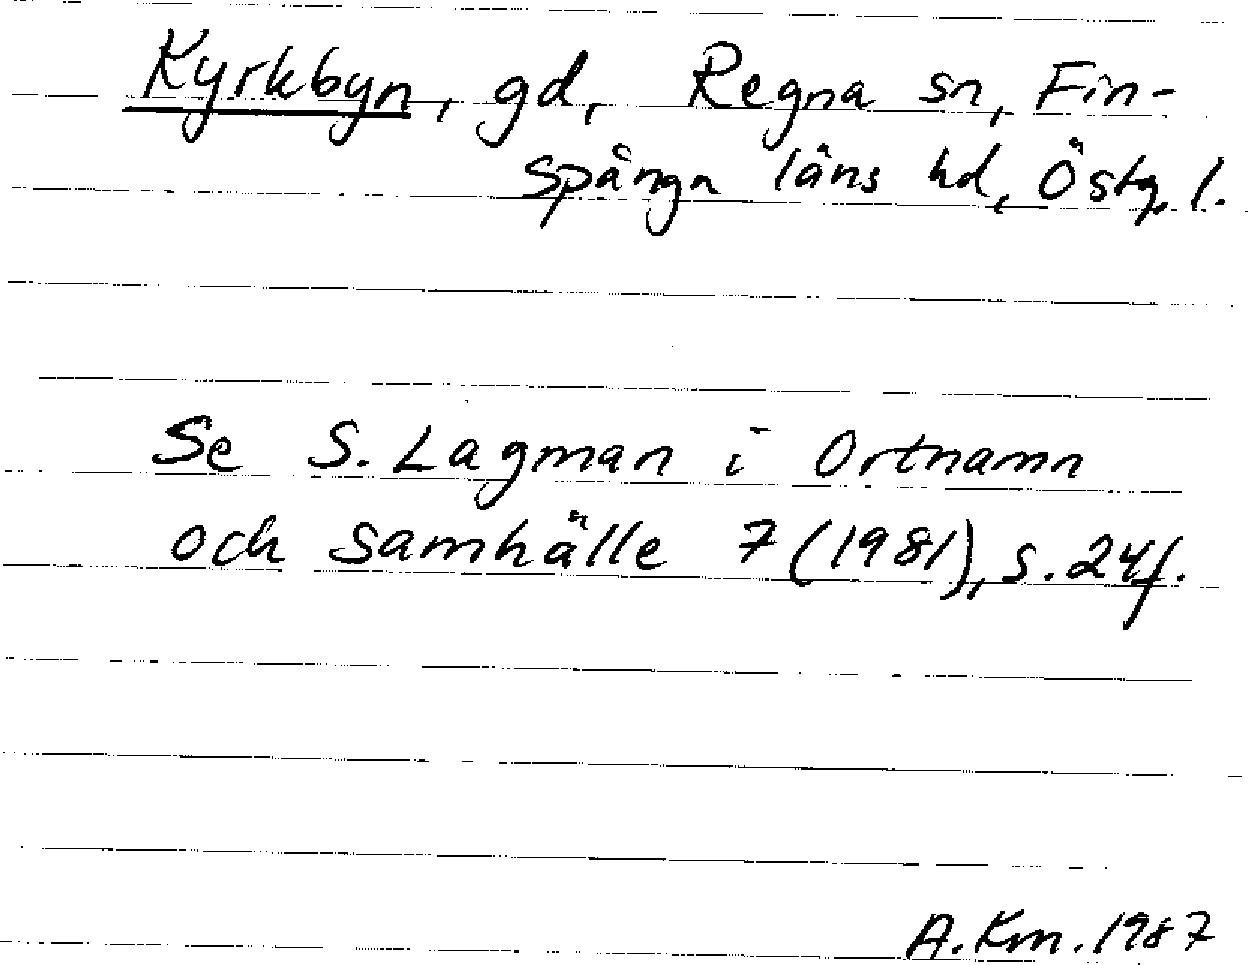 Kyrkbyn, gd, Regna sn, Fin-
spånga läns hd, Östg. l.
Se S. Lagman i Ortnamn
och samhälle 7 (1981), s. 24f.
A.Km. 1987